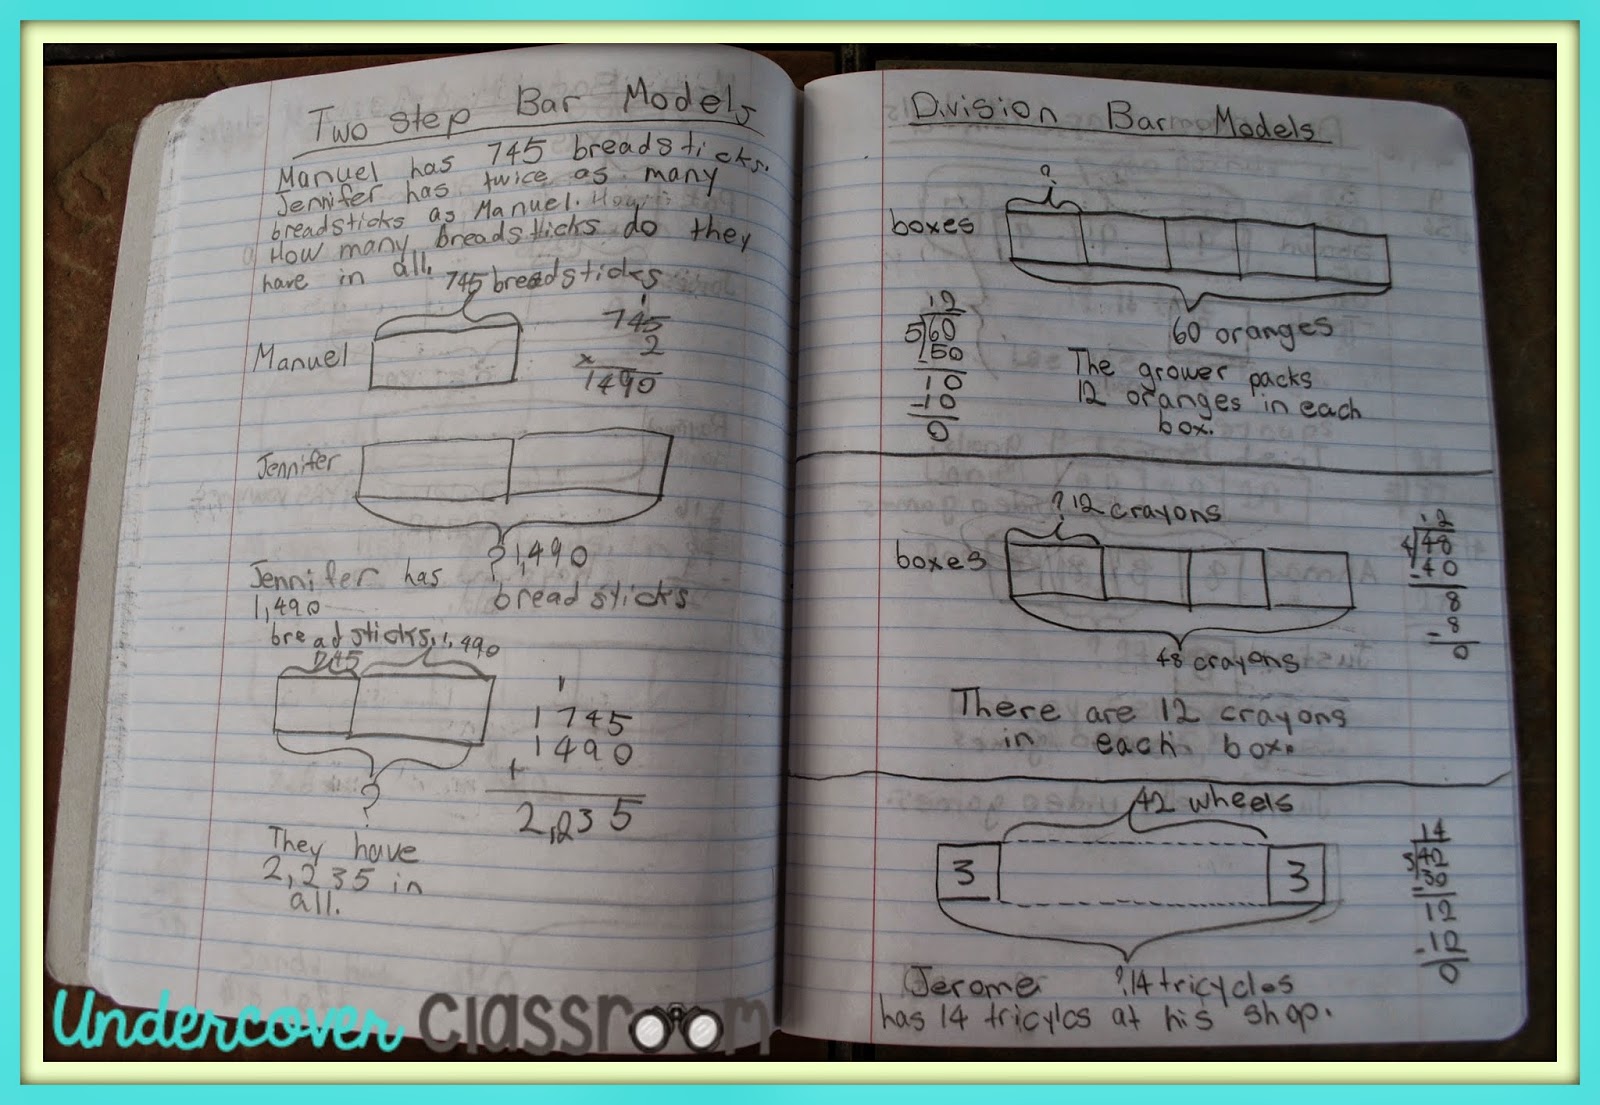 Two step Bar Models
Manuel has 745 breadsticks.
Jennifer has twice as many
breadsticks as Manuel.
How many breadsticks do they
have in all.
745 breadsticks
Manuel
1
745
2
x
1490
Jennifer
? 1,490
breadsticks
Jennifer has
1,490
breadsticks.
745
1,490
?
1
1745
1490
+
2,235
They have
2,235 in
all.
Division Bar Models
?
boxes
60 oranges
12
5 60
-50
10
-10
0
The grower packs
12 oranges in each
box.
? 12 crayons
boxes
48 crayons
12
4 48
-40
8
-8
0
There are 12 crayons
in each box.
42 wheels
3 3
14
3 42
-30
12
-12
0
Jerome ? 14 tricycles
has 14 tricylcs at his shop.
Undercover Classroom